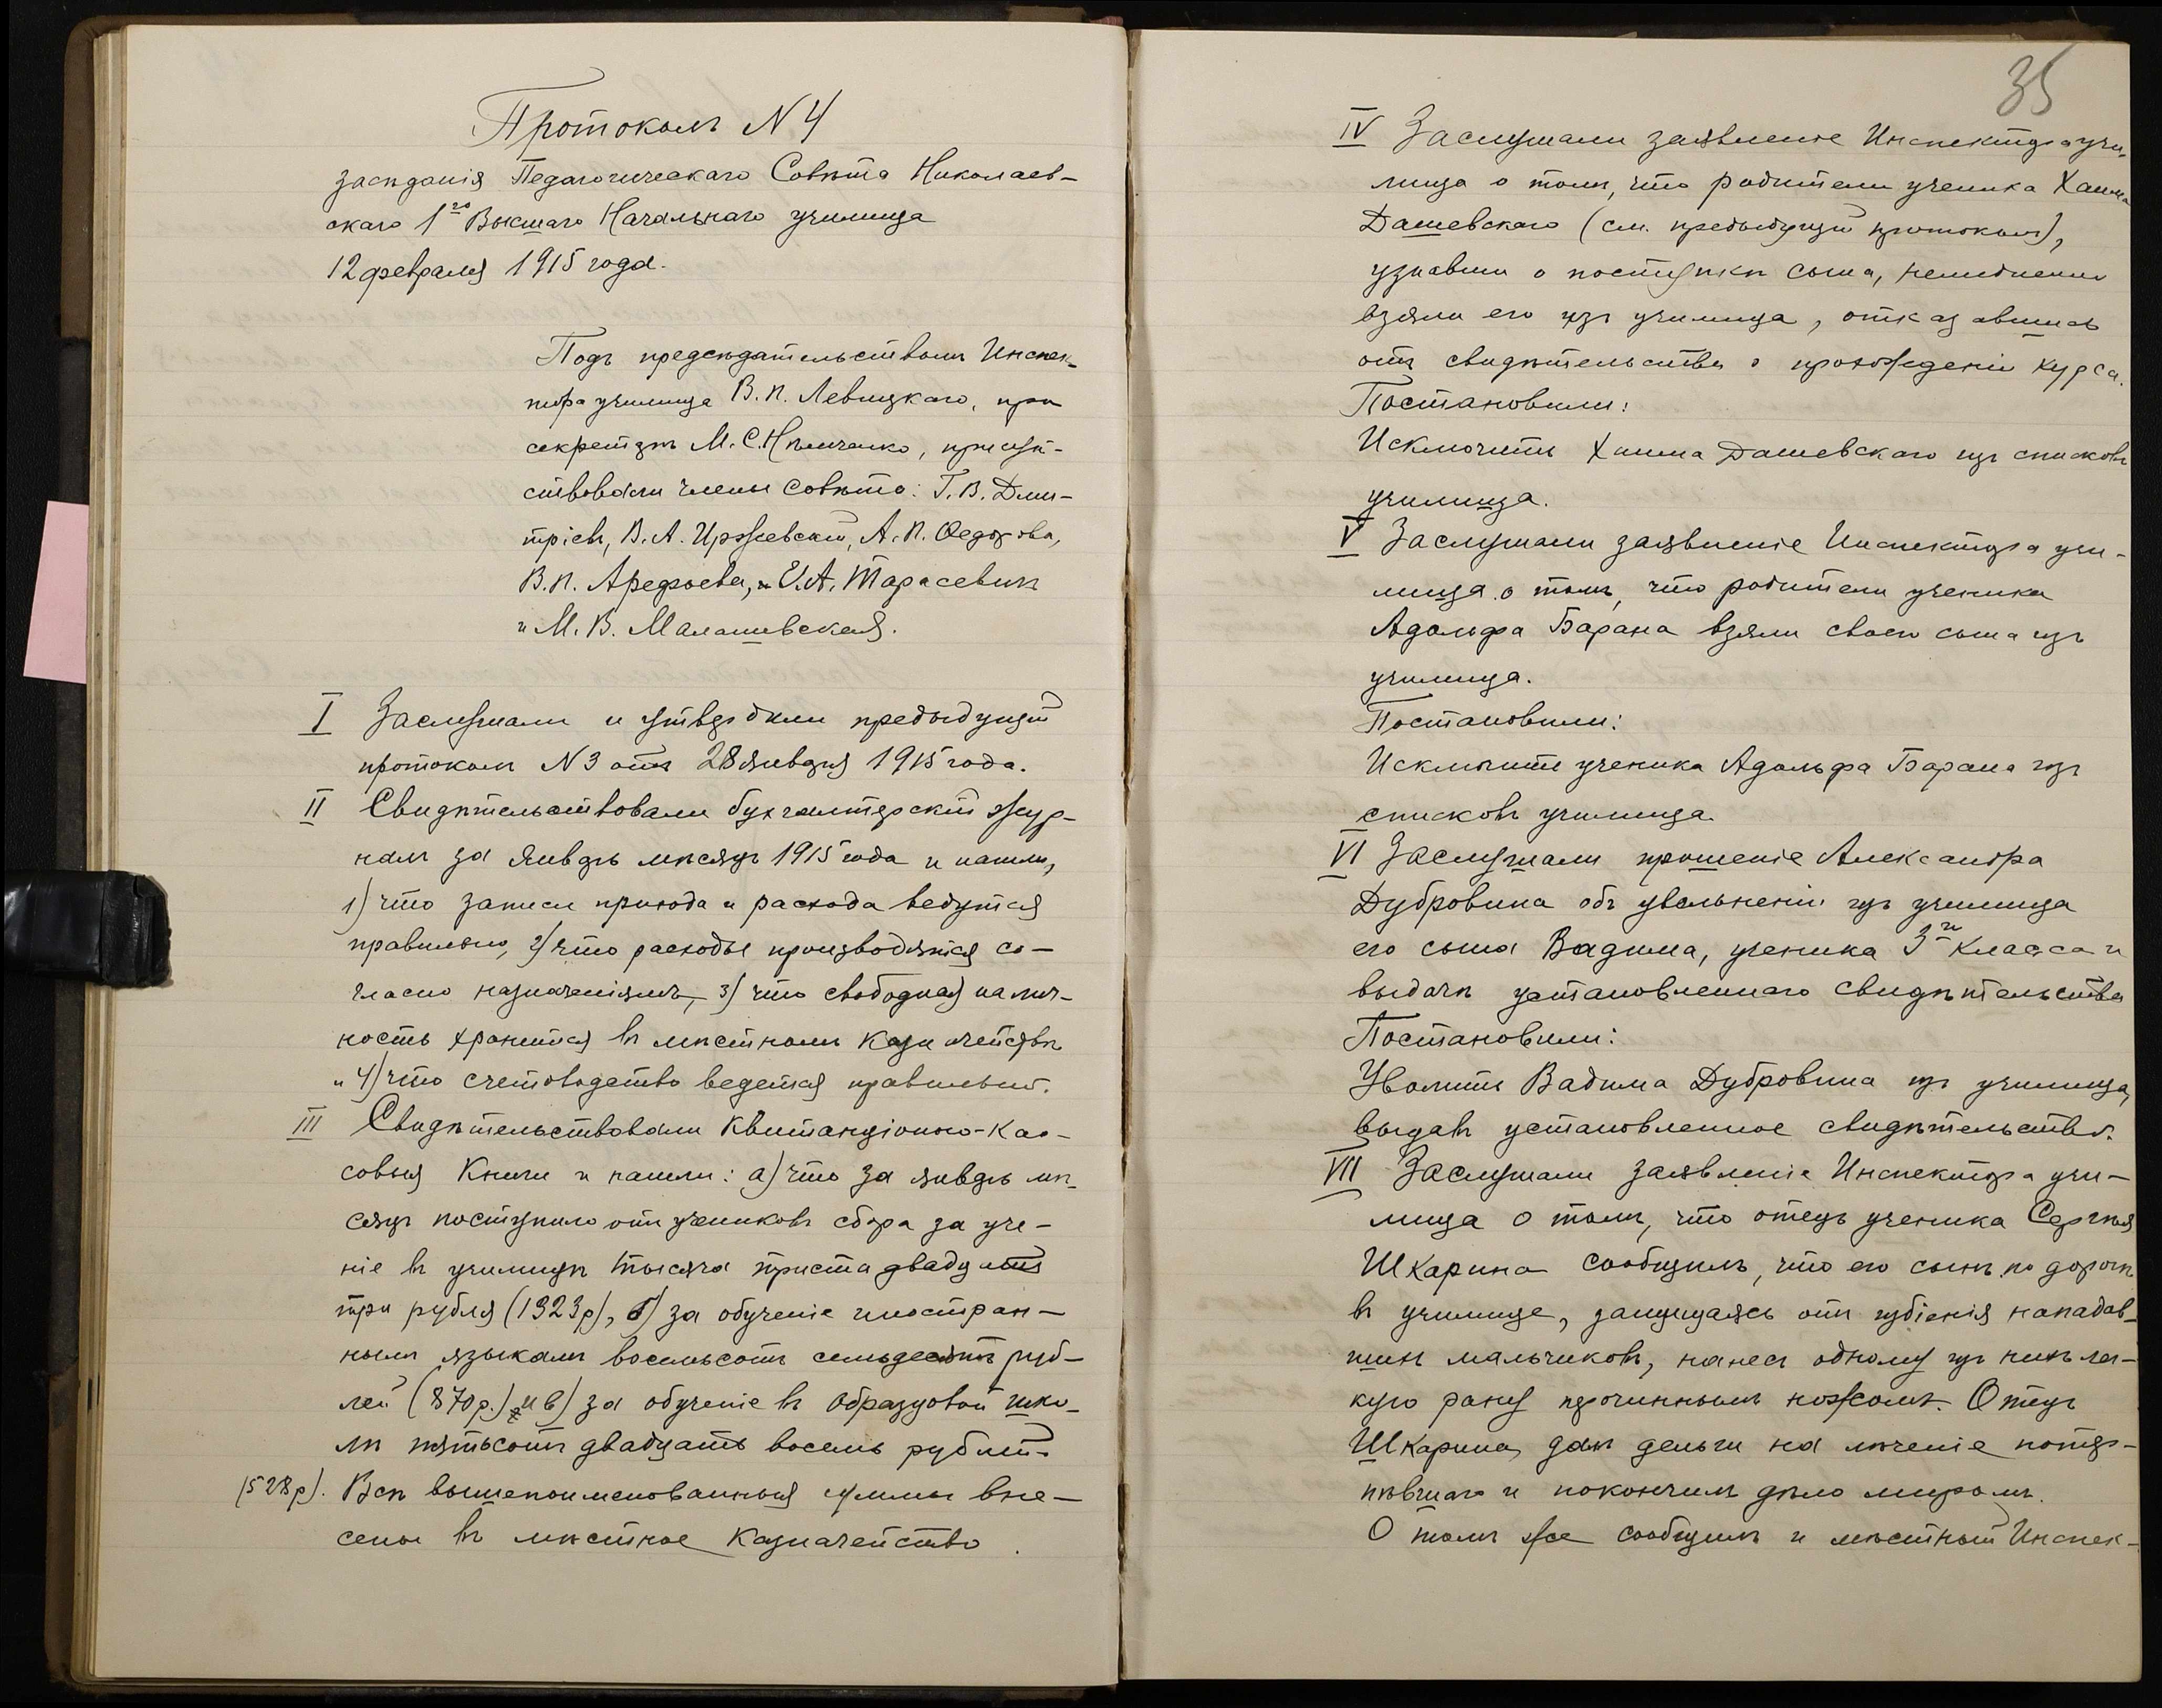 Протоколъ N 4
засѣданія Педагогическаго Совѣта Николаев-
скаго 1го Высшаго Начальнаго училища
12 февраля 1915 года.
Подъ предсѣдательствомъ Инспек-
тора училища В. П. Левицкаго, при
секретарѣ М. С. Нѣмченко, присут-
ствовали члены Совѣта: Г. В. Дми-
тріевъ, В. А. Иржевскій, А. П. Ѳедорова,
В. П. Арефьева, Е. А. Тарасевичъ
и М. В. Малашевская.
I Заслушали и утвердили предыдущій
протоколъ N 3 отъ 28 января 1915 года.
II Свидѣтельствовали бухгалтерскій жур-
налъ за январь мѣсяцъ 1915 года и нашли,
1) что записи прихода и расхода ведутся
правильно, 2) что расходы производятся со-
гласно назначеніямъ, 3) что свободная налич-
ность хранится въ мѣстномъ Казначействѣ
и 4) что счетоводство ведется правильно.
III Свидѣтельствовали Квитанціонно-Кас-
совыя Книги и нашли: а) что за январь мѣ-
сяцъ поступило отъ учениковъ сбора за уче-
ніе въ училищѣ тысяча триста двадцать
три рубля (1323 р), б) за обученіе иностран-
нымъ языкамъ восемьсотъ семьдесятъ руб-
лей (870 р.) и в) за обученіе въ образцовой шко-
лѣ пятьсотъ двадцать восемь рублей
(528 р). Всѣ вышепоименованныя суммы вне-
сены въ мѣстное Казначейство.
35
IV Заслушали заявленіе Инспектора учи-
лища о томъ, что родители ученика Хаима
Дашевскаго (см. предыдущій протоколъ),
узнавши о поступкѣ сына, немедленно
взяли его изъ училища, отказавшись
отъ свидѣтельства о прохожденіи курса.
Постановили:
Исключить Хаима Дашевскаго изъ списковъ
училища.
V Заслушали заявленіе Инспектора учи-
лища о томъ, что родители ученика
Адольфа Барана взяли своего сына изъ
училища.
Постановили:
Исключить ученика Адольфа Барана изъ
списковъ училища.
VI Заслушали прошеніе Александра
Дубровина объ увольненіи изъ училища
его сына Вадима, ученика 3го класса и
выдачѣ установленнаго свидѣтельства
Постановили:
Уволить Вадима Дубровина изъ училища,
выдавъ установленное свидѣтельство.
VII Заслушали заявленіе Инспектора учи-
лища о томъ, что отецъ ученика Сергѣя
Шкарина сообщилъ, что его сынъ по дорогѣ
въ училище, защищаясь отъ избіенія нападав-
шихъ мальчиковъ, нанесъ одному изъ нихъ лег-
кую рану перочиннымъ ножомъ. Отецъ
Шкарина далъ деньги на лѣченіе потер-
пѣвшаго и покончилъ дѣло миромъ.
О томъ же сообщилъ и мѣстный Инспек-